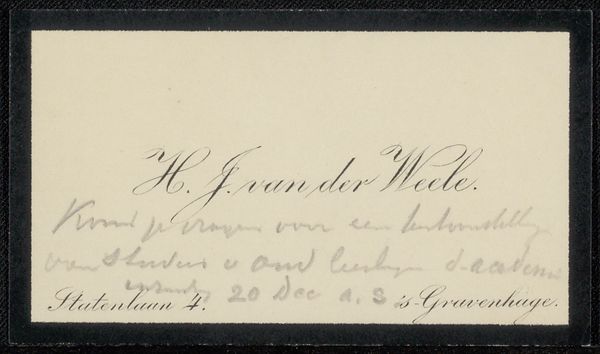 H. J. van der Weele.
Kom je vragen voor een tentoonstelling
van studies v oud leerlingen d. academie
20 Dec a. s
Statenlaan 4. 's-Gravenhage.